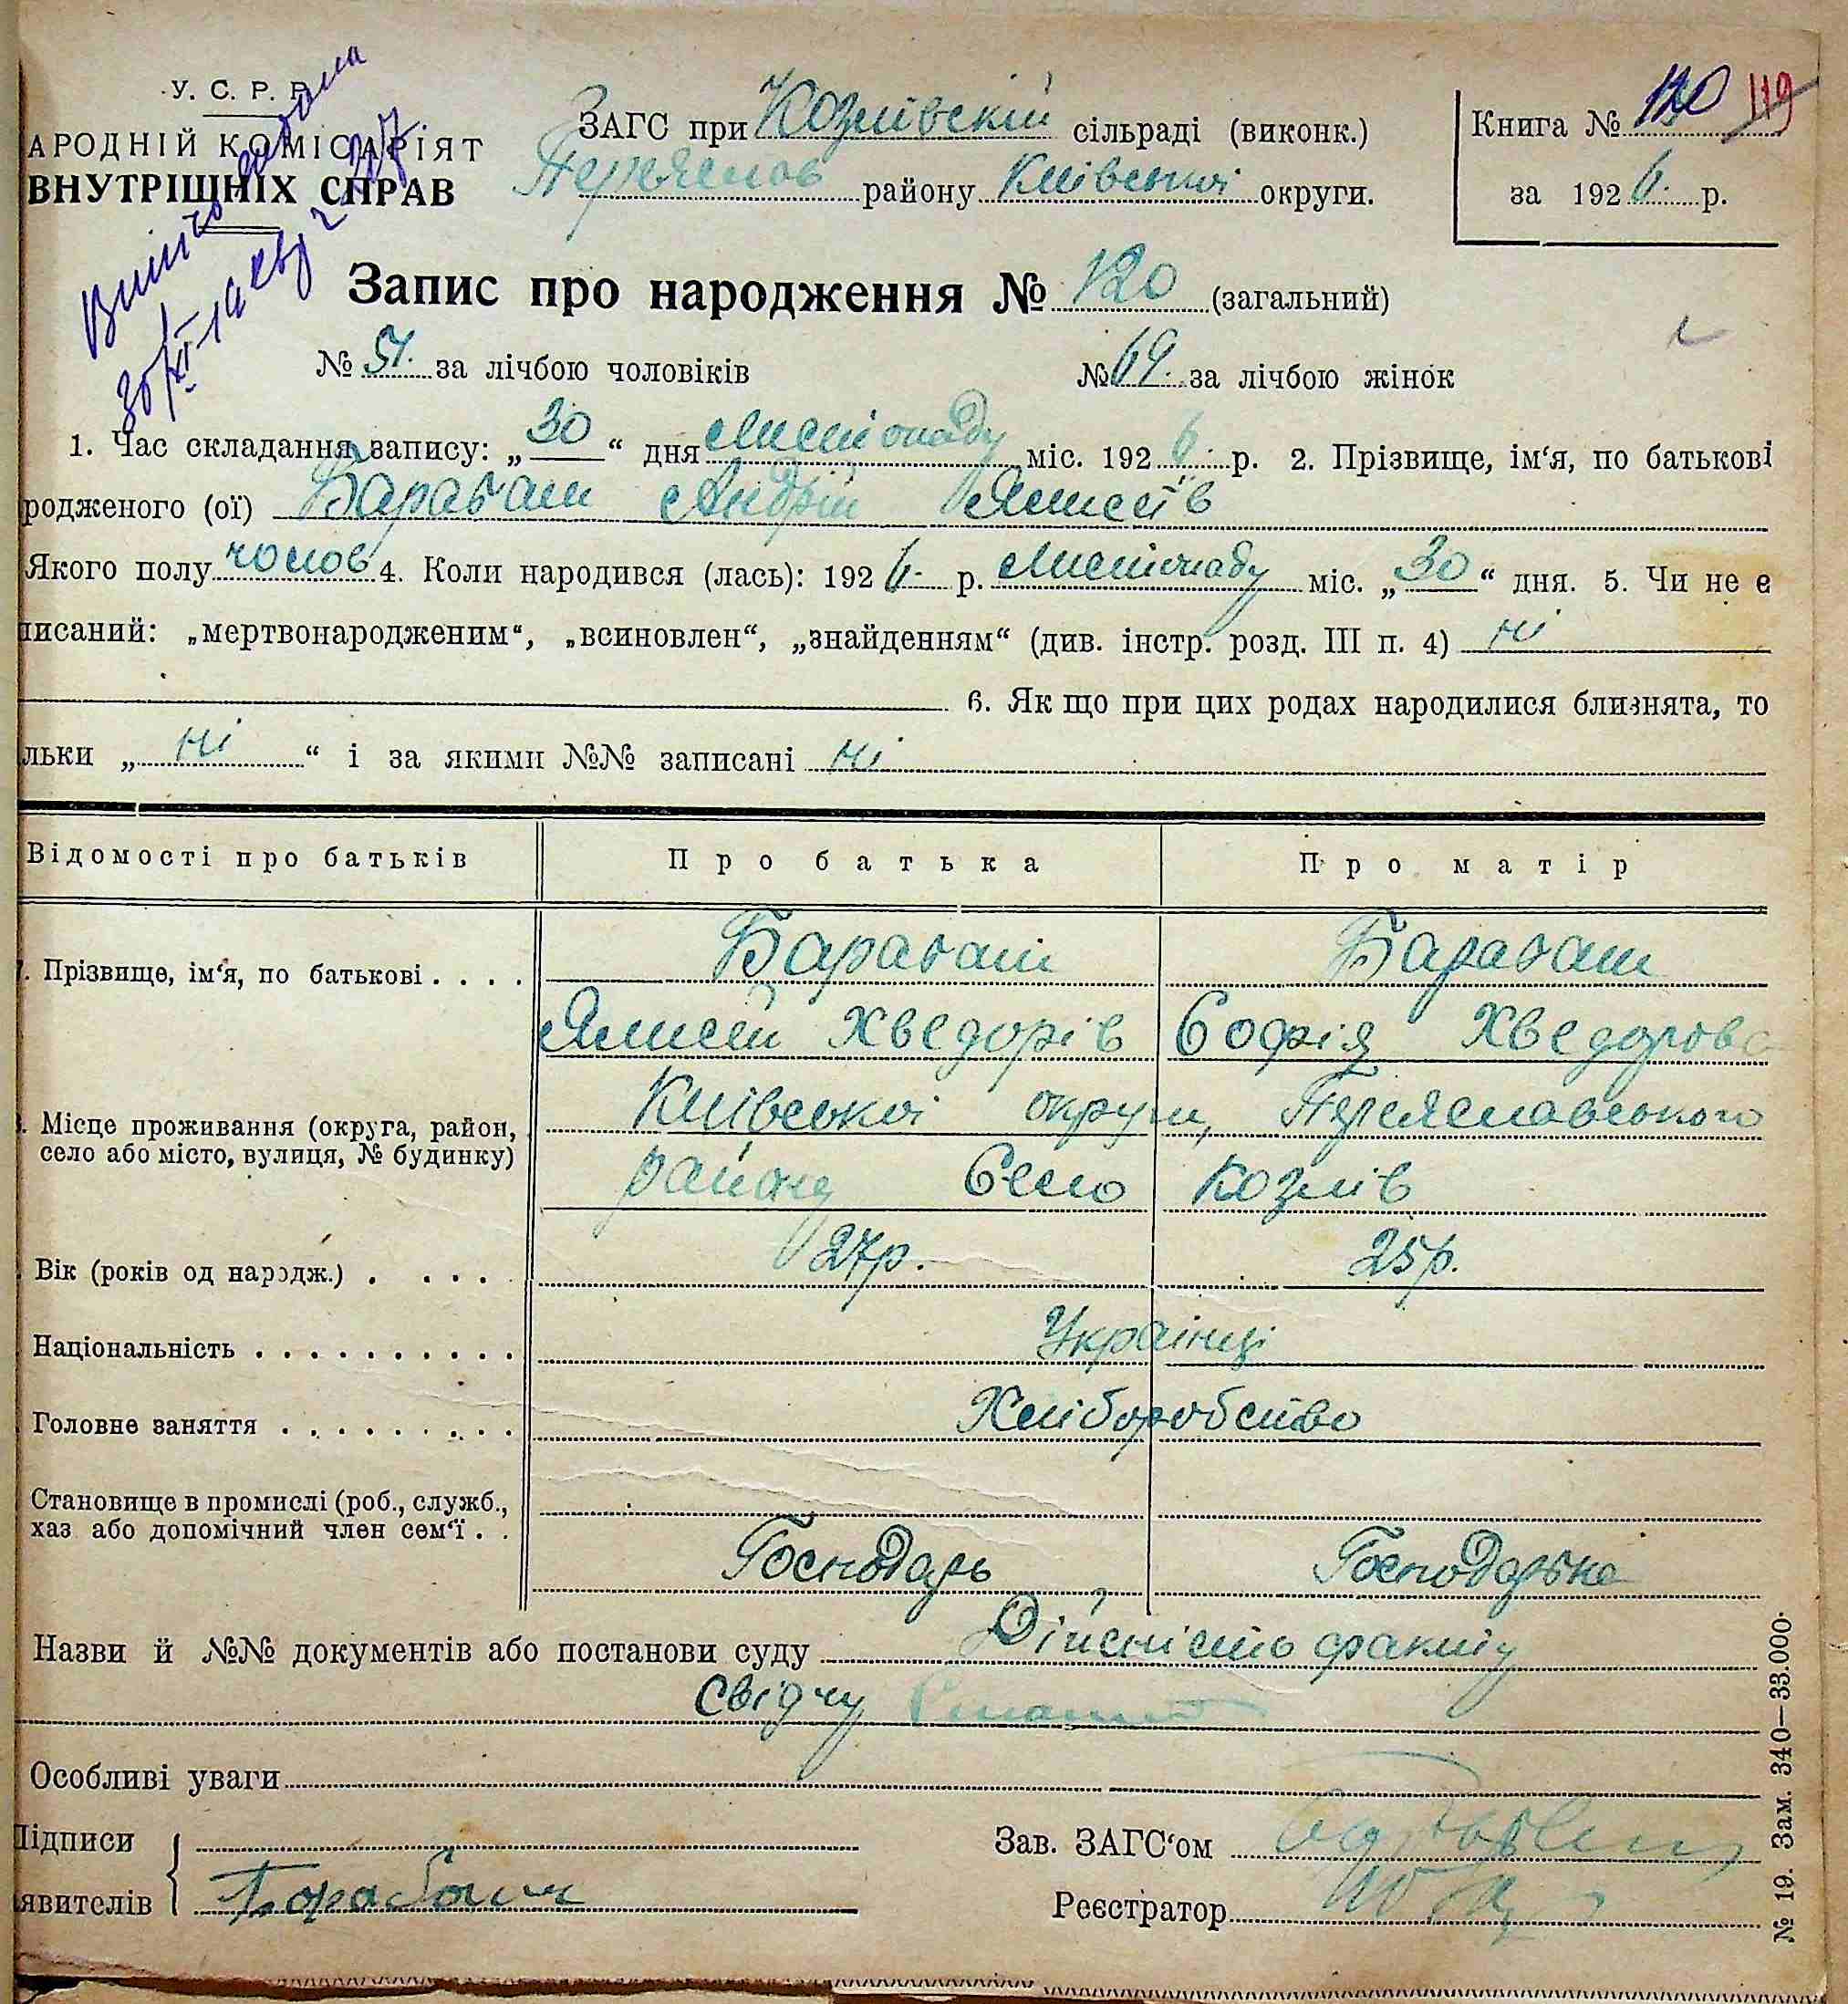 У. С. Р. Р.
АРОДНІЙ КОМІСАРІЯТ
ВНУТРІШНІХ СПРАВ
ЗАГС при Козлівскій сільраді (виконк.)
Переяслов району Київської округи.
Книга № 120 119
за 1926 р.
Запис про народження № 120 (загальний)
№ 51. за лічбою чоловіків № 69. за лічбою жінок
1. Час складання запису: „30“ дня Листопаду міс. 1926 р. 2. Прізвище, ім‘я, по батькові
родженого (ої) Барабаш Андрій
Якого полу чолов 4. Коли народився (лась): 1926. р. Листопаду міс. „30“ дня. 5. Чи не є
писаний: „мертвонародженим“, „всиновлен“, „знайденням“ (див. інстр. розд. III п. 4) ні
6. Як що при цих родах народилися близнята, то
льки „ ні “ і за якими №№ записані ні
Відомості про батьків Про батька Про матір
Прізвище, ім‘я, по батькові . . . . Барабаш Барабаш
Хведорів Софія Хведорова
Місце проживання (округа, район, село або місто, вулиця, № будинку) Київської округи, Переяславського
району Село Козлів
Вік (років од народж.) . . . . . 27р. 25р.
Національність . . . . . . . . . . Українці
Головне заняття . . . . . . . . . Хліборобство
Становище в промислі (роб., служб.,
хаз або допомічний член сем‘ї . .
Господарь Господарька
Назви й №№ документів або постанови суду Дійсність факту
свідчу
Особливі уваги
Підписи
явителів Барабаш
Зав. ЗАГС‘ом
Реєстратор
№ 19. Зам. 340—33.000.